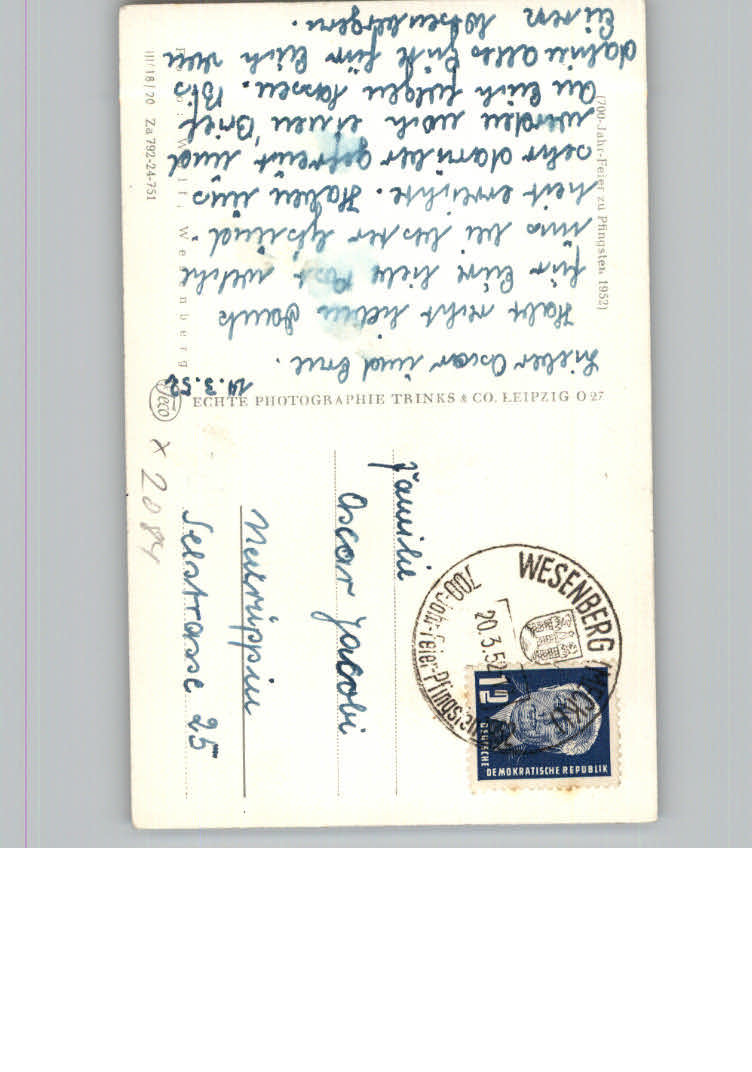 (700-Jahr-Feier zu Pfingsten 1952)
19.3.52
Lieber Oscar und Erne.
Habt recht lieben Dank
für Eure liebe Post welche
uns bei bester Gesund-
heit erreichte. Haben uns
sehr darüber gefreut und
werden noch einen Brief
an Euch folgen lassen. Bis
dahin alles Gute für Euch von
Euren Wesenbergern.
Wesenberg
III/18/70 Za 792-24-751
Jeco
ECHTE PHOTOGRAPHIE TRINKS & CO. LEIPZIG O 27
x 2084
WESENBERG
700-Jahr-Feier-Pfingsten
20.3.52
12
DEUTSCHE
DEMOKRATISCHE REPUBLIK
Familie
Oscar Jacobi
Neuruppin
Seestrasse 25